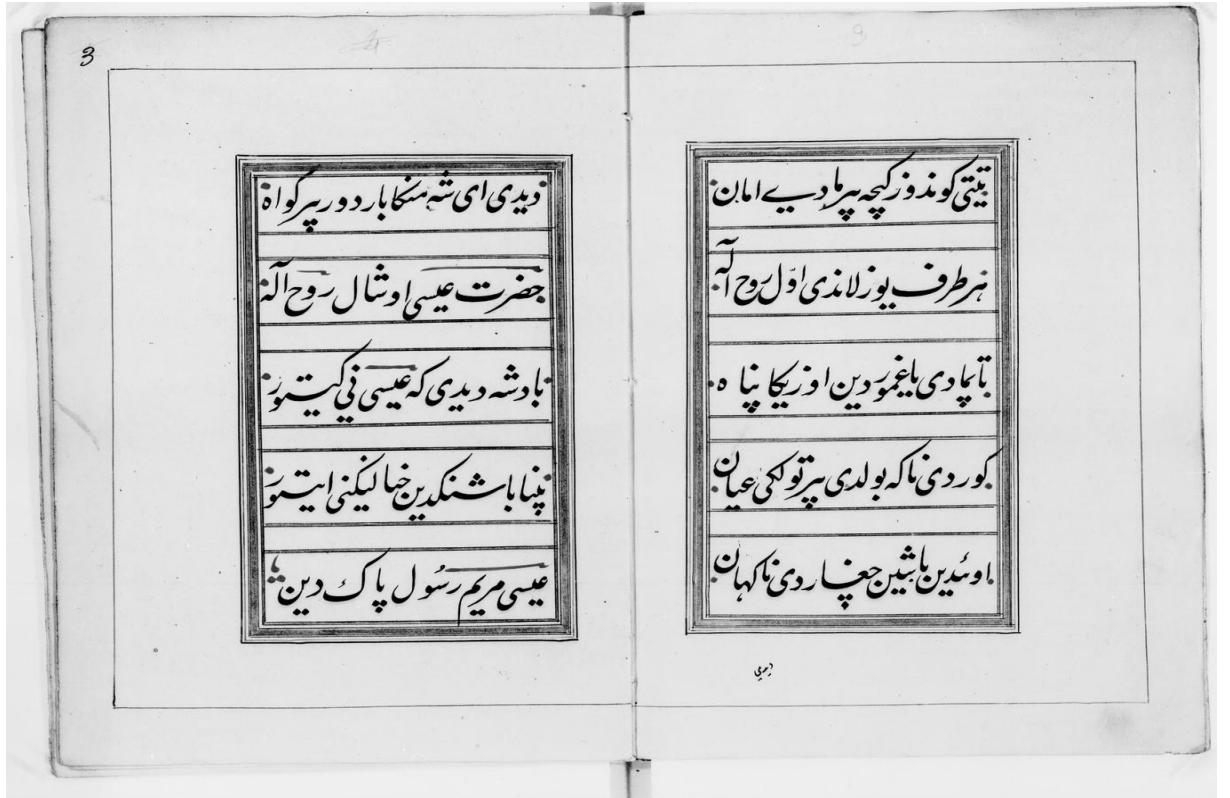 یتی کوندوز کیچه بیرمادی امان
هر طرف یوزلاندی اول روح اله
تاپمادی یاغموردین اوزیکا پناه
کوردی ناکه بولدی بیر تولکی عیان
اوئیدین باشین چغاردی ناکهان
دیدی
3
دیدی ای شه منکا باردور بیر کواه
حضرت عیسی اوشال روح اله
پادشه دیدی که عیسی نی کیتور
پنبا باشنکدین خیالینکنی ایتور
عیسی مریم رسول پاک دین